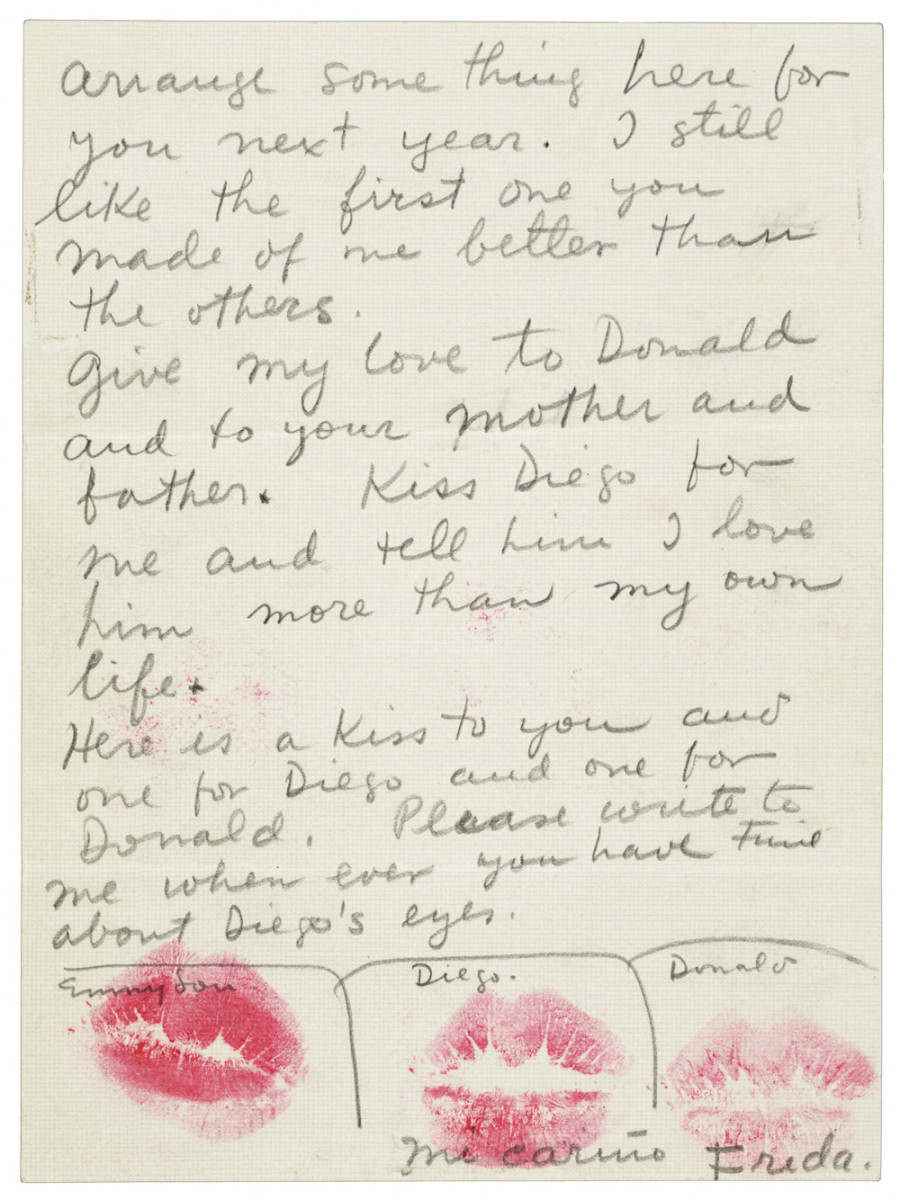 arrange some thing here for
you next year. I still
like the first one you
made of me better than
the others.
Give my love to Donald
and to your mother and
father. Kiss Diego for
me and tell him I love
him more than my own
life.
Here is a Kiss to you and
one for Diego and one for
Donald. Please write to
me when ever you have time
about Diego's eyes.
Emmy Lou
Diego.
Donald
mi cariño Frida.